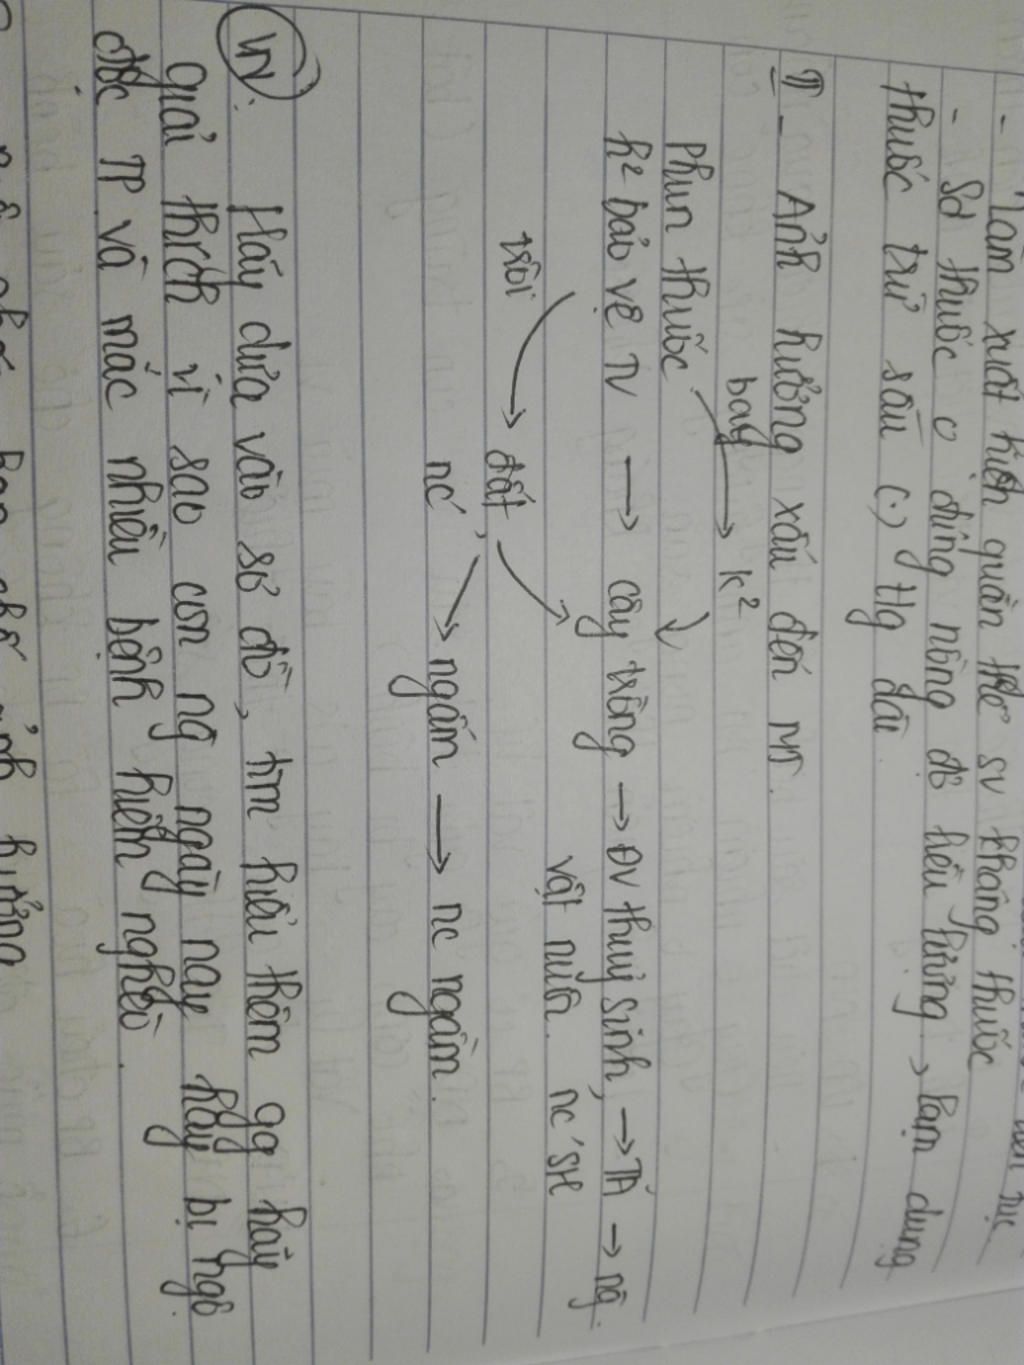 - Làm xuất hiện quần thể sv kháng thuốc
- Sd thuốc o đúng nồng độ liều lượng, lạm dụng
thuốc trừ sâu (.) t/g dài.
II - Ảnh hưởng xấu đến MT.
bay → k²
Phun thuốc
h² bảo vệ TV → cây trồng → ĐV thuỷ sinh, → TĂ → ng.
vật nuôi. nc' SH
trôi → đất,
nc' → ngấm → nc ngầm.
VN: Hãy dựa vào sơ đồ, tìm hiểu thêm qa hãy
giải thích vì sao con ng ngày nay hay bị ngộ
độc TP và mắc nhiều bệnh hiểm nghèo.
ảnh hưởng